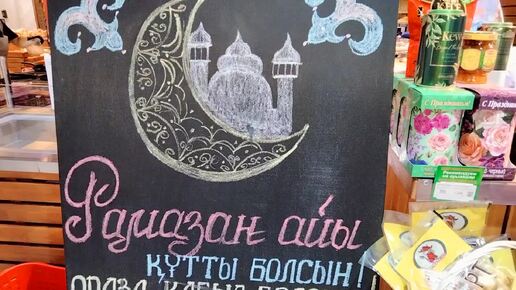 Рамазан айы
ҚҰТТЫ БОЛСЫН!
ОРАЗА ҚАБЫЛ
С Праздником!
С Праздником!